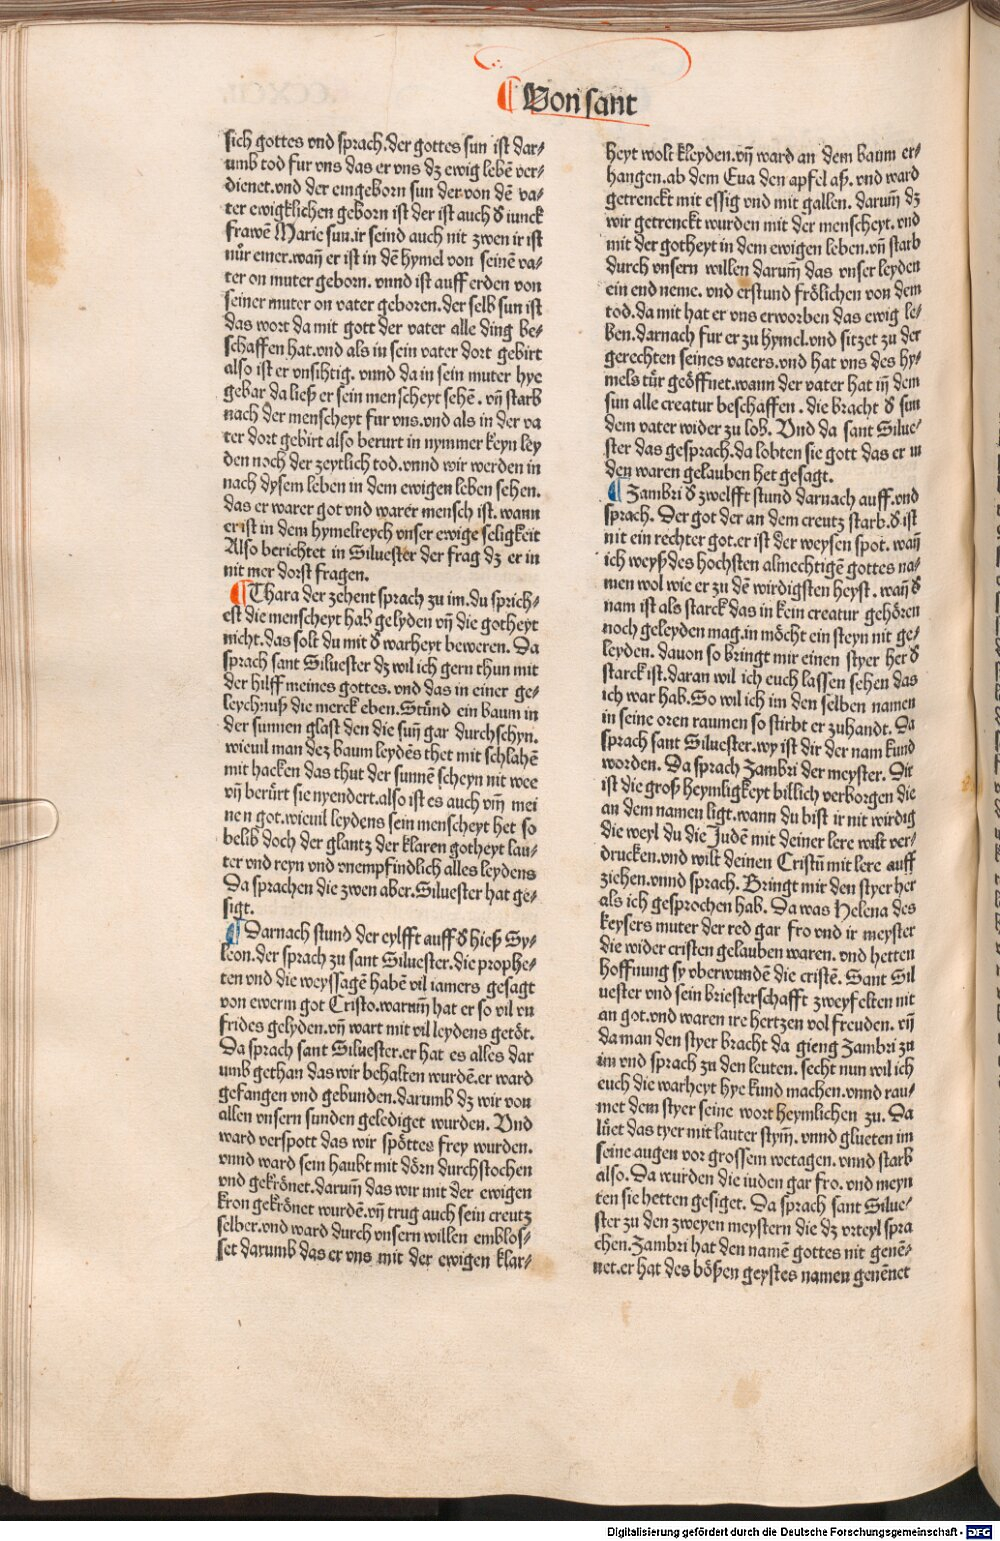 ¶ Von sant
sich gottes vnd sprach.der gottes sun ist dar⸗
umb tod fur vns das er vns dz ewig lebē ver⸗
dienet.vnd der eingeborn sun der von dē va⸗
ter ewigklichen geborn ist der ist auch d̕ iunck
frawē Marie sun.ir seind auch nit zwen ir ist
nůr einer.wañ er ist in dē hymel von seinē va⸗
ter on muter geborn. vnnd ist auff erden von
seiner muter on vater geboren.der selb sun ist
das wort da mit gott der vater alle ding be⸗
schaffen hat.vnd als in sein vater dort gebirt
also ist er vnsihtig. vnnd da in sein muter hye
gebar da ließ er sein menscheyt sehē. vñ starb
nach der menscheyt fur vns.vnd als in der va
ter dort gebirt also berurt in nymmer keyn ley
den noch der zeytlich tod.vnnd wir werden in
nach dysem leben in dem ewigen leben sehen.
das er warer got vnd warer mensch ist. wann
er ist in dem hymelreych vnser ewige seligkeit
Also berichtet in Siluester der frag dz er in
nit mer dorst fragen.
¶ Thara der zehent sprach zu im.du sprich⸗
est die menscheyt hab gelyden vñ die gotheyt
nicht.das solt du mit d̕ warheyt beweren. Da
sprach sant Siluester dz wil ich gern thun mit
der hilff meines gottes. vnd das in einer ge⸗
leychnuß die merck eben.Stůnd ein baum in
der sunnen glast den die suñ gar durchschyn.
wieuil man dez baum leydēs thet mit schlahē
mit hacken das thut der sunnē scheyn nit wee
vñ berůrt sie nyendert.also ist es auch vm̃ mei
nen got.wieuil leydens sein menscheyt het so
belib doch der glantz der klaren gotheyt lau⸗
ter vnd reyn vnd vnempfindlich alles leydens
Da sprachen die zwen aber.Siluester hat ge⸗
sigt.
¶ Darnach stund der eylfft auff d̕ hieß Sy⸗
leon.der sprach zu sant Siluester.die prophe⸗
ten vnd die weyssagē habē vil iamers gesagt
von ewerm got Cristo.warum̃ hat er so vil vn
frides gelyden.vñ wart mit vil leydens getöt.
Da sprach sant Siluester.er hat es alles dar
umb gethan das wir behalten wurdē.er ward
gefangen vnd gebunden.darumb dz wir von
allen vnsern sunden gelediget wurden. Vnd
ward verspott das wir spöttes frey wurden.
vnnd ward sein haubt mit dörn durchstochen
vnd gekrönet.darum̃ das wir mit der ewigen
kron gekrönet wurdē.vñ trug auch sein creutz
selber.vnd ward durch vnsern willen emblos⸗
set darumb das er vns mit der ewigen klar⸗
heyt wolt kleyden.vñ ward an dem baum er⸗
hangen.ab dem Eua den apfel aß. vnd ward
getrenckt mit essig vnd mit gallen. darum̃ dz
wir getrenckt wurden mit der menscheyt.vnd
mit der gotheyt in dem ewigen leben.vñ starb
durch vnsern willen darum̃ das vnser leyden
ein end neme. vnd erstund frölichen von dem
tod.da mit hat er vns erworben das ewig le⸗
ben.darnach fur er zu hymel.vnd sitzet zu der
gerechten seines vaters.vnd hat vns des hy⸗
mels tůr geöffnet.wann der vater hat iñ dem
sun alle creatur beschaffen . die bracht d̕ sun
dem vater wider zu lob. Vnd da sant Silue⸗
ster das gesprach.da lobten sie gott das er in
den waren gelauben het gesagt.
¶ Zambri d̕ zwelfft stund darnach auff.vnd
sprach. Der got der an dem creutz starb.d̕ ist
nit ein rechter got.er ist der weysen spot. wañ
ich weyß des hochsten almechtigē gottes na⸗
men wol wie er zu dē wirdigsten heyst . wañ d̕
nam ist als starck das in kein creatur gehören
noch geleyden mag.in möcht ein steyn nit ge⸗
leyden. dauon so bringt mir einen styer her d̕
starck ist.daran wil ich euch lassen sehen das
ich war hab.So wil ich im den selben namen
in seine oren raumen so stirbt er zuhandt. Da
sprach sant Siluester.wy ist dir der nam kund
worden. Da sprach Zambri der meyster. Dir
ist die groß heymligkeyt billich verborgen die
an dem namen ligt.wann du bist ir nit wirdig
die weyl du die Judē mit deiner lere wilt ver⸗
drucken.vnd wilt deinen Cristñ mit lere auff
ziehen.vnnd sprach. Bringt mir den styer her
als ich gesprochen hab. Da was Helena des
keysers muter der red gar fro vnd ir meyster
die wider cristen gelauben waren. vnd hetten
hoffnung sy vberwundē die cristē. Sant Sil
uester vnd sein briesterschafft zweyfelten nit
an got.vnd waren ire hertzen vol freuden. vñ
da man den styer bracht da gieng Zambri zu
im vnd sprach zu den leuten. secht nun wil ich
euch die warheyt hye kund machen.vnnd rau⸗
met dem styer seine wort heymlichen zu. Da
lůet das tyer mit lauter stym̃. vnnd glueten im
seine augen vor grossem wetagen. vnnd starb
also. Da wurden die iuden gar fro. vnd meyn
ten sie hetten gesiget. Da sprach sant Silue⸗
ster zu den zweyen meystern die dz vrteyl spra
chen.Zambri hat den namē gottes nit genē⸗
net.er hat des bößen geystes namen genēnet
Digitalisierung gefördert durch die Deutsche Forschungsgemeinschaft - DFG